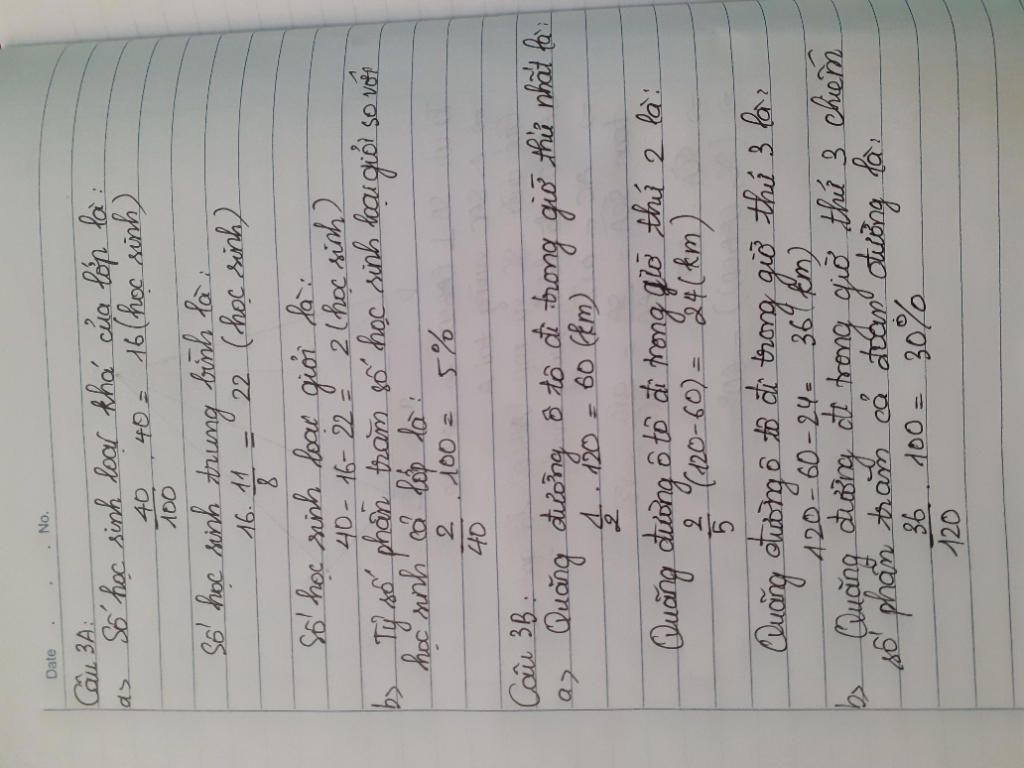 Date . . . No.
Câu 3A:
a> Số học sinh loại khá của lớp là:
40/100 . 40 = 16 (học sinh)
Số học sinh trung bình là:
16 . 11/8 = 22 (học sinh)
Số học sinh loại giỏi là:
40 - 16 - 22 = 2 (học sinh)
b> Tỷ số phần trăm số học sinh loại giỏi so với
học sinh cả lớp là:
2/40 . 100 = 5%
Câu 3B:
a> Quãng đường ô tô đi trong giờ thứ nhất là:
1/2 . 120 = 60 (km)
Quãng đường ô tô đi trong giờ thứ 2 là:
2/5 (120 - 60) = 24 (km)
Quãng đường ô tô đi trong giờ thứ 3 là:
120 - 60 - 24 = 36 (km)
b> Quãng đường đi trong giờ thứ 3 chiếm
số phần trăm cả đoạn đường là:
36/120 . 100 = 30%